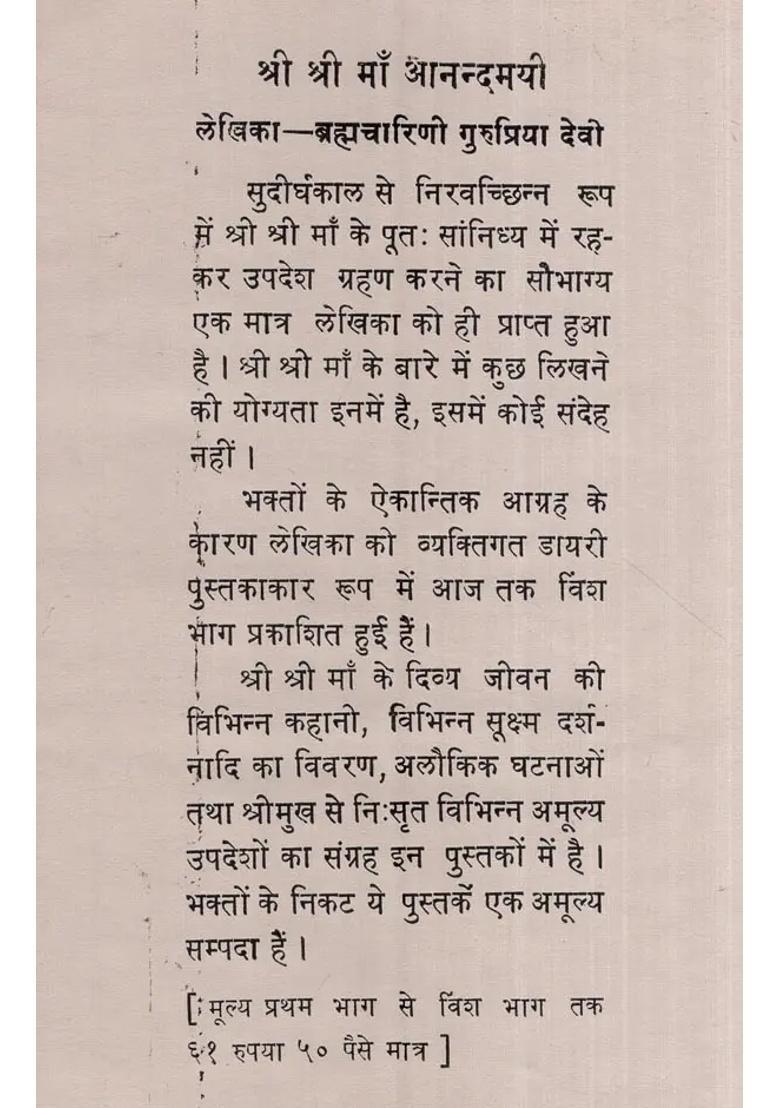 श्री श्री माँ आनन्दमयी
लेखिका—ब्रह्मचारिणी गुरुप्रिया देवी
सुदीर्घकाल से निरवच्छिन्न रूप
में श्री श्री माँ के पूतः सांनिध्य में रह-
कर उपदेश ग्रहण करने का सौभाग्य
एक मात्र लेखिका को ही प्राप्त हुआ
है । श्री श्री माँ के बारे में कुछ लिखने
की योग्यता इनमें है, इसमें कोई संदेह
नहीं ।
भक्तों के ऐकान्तिक आग्रह के
कारण लेखिका को व्यक्तिगत डायरी
पुस्तकाकार रूप में आज तक विंश
भाग प्रकाशित हुई हैं ।
श्री श्री माँ के दिव्य जीवन की
विभिन्न कहानी, विभिन्न सूक्ष्म दर्श-
नादि का विवरण, अलौकिक घटनाओं
तथा श्रीमुख से निःसृत विभिन्न अमूल्य
उपदेशों का संग्रह इन पुस्तकों में है ।
भक्तों के निकट ये पुस्तकें एक अमूल्य
सम्पदा हैं ।
[ मूल्य प्रथम भाग से विंश भाग तक
६१ रुपया ५० पैसे मात्र ]